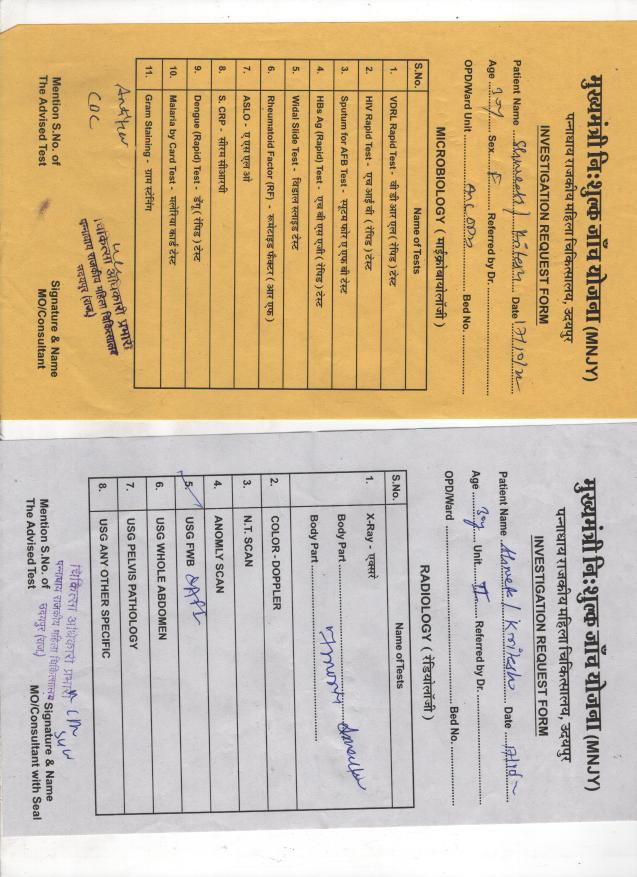 मुख्यमंत्री नि:शुल्क जाँच योजना (MNJY)
पन्नाधाय राजकीय महिला चिकित्सालय, उदयपुर
INVESTIGATION REQUEST FORM
Patient Name ........ Date 17/10/22
Age 30y Sex F Referred by Dr. ........
OPD/Ward Unit ........ ANC OPD ........ Bed No. ........
MICROBIOLOGY ( माईक्रोबायोलॉजी )
S.No. Name of Tests
1. VDRL Rapid Test - वी डी आर एल ( रंपिड ) टेस्ट
2. HIV Rapid Test - एच आई वी ( रंपिड ) टेस्ट
3. Sputum for AFB Test - स्पूटम फोर ए एफ बी टेस्ट
4. HBs Ag (Rapid) Test - एच बी एस एजी ( रंपिड ) टेस्ट
5. Widal Slide Test - विडाल स्लाइड टेस्ट
6. Rheumatoid Factor (RF) - रूमेटाइड फैक्टर ( आर एफ )
7. ASLO - ए एस एल ओ
8. S. CRP - सीरम सीआरपी
9. Dengue (Rapid) Test - डेंगू ( रंपिड ) टेस्ट
10. Malaria by Card Test - मलेरिया कार्ड टेस्ट
11. Gram Staining - ग्राम स्टेनिंग
चिकित्सा अधिकारी प्रभारी
पन्नाधाय राजकीय महिला चिकित्सालय
उदयपुर (राज.)
Mention S.No. of Signature & Name
The Advised Test MO/Consultant
मुख्यमंत्री नि:शुल्क जाँच योजना (MNJY)
पन्नाधाय राजकीय महिला चिकित्सालय, उदयपुर
INVESTIGATION REQUEST FORM
Patient Name ........ Date ........
Age 30y Unit II Referred by Dr. ........
OPD/Ward ........ Bed No. ........
RADIOLOGY ( रेडियोलॉजी )
S.No. Name of Tests
1. X-Ray - एक्सरे
Body Part ........
Body Part ........
2. COLOR - DOPPLER
3. N.T. SCAN
4. ANOMLY SCAN
5. USG FWB
6. USG WHOLE ABDOMEN
7. USG PELVIS PATHOLOGY
8. USG ANY OTHER SPECIFIC
चिकित्सा अधिकारी प्रभारी
पन्नाधाय राजकीय महिला चिकित्सालय
उदयपुर (राज.)
Mention S.No. of Signature & Name
The Advised Test MO/Consultant with Seal